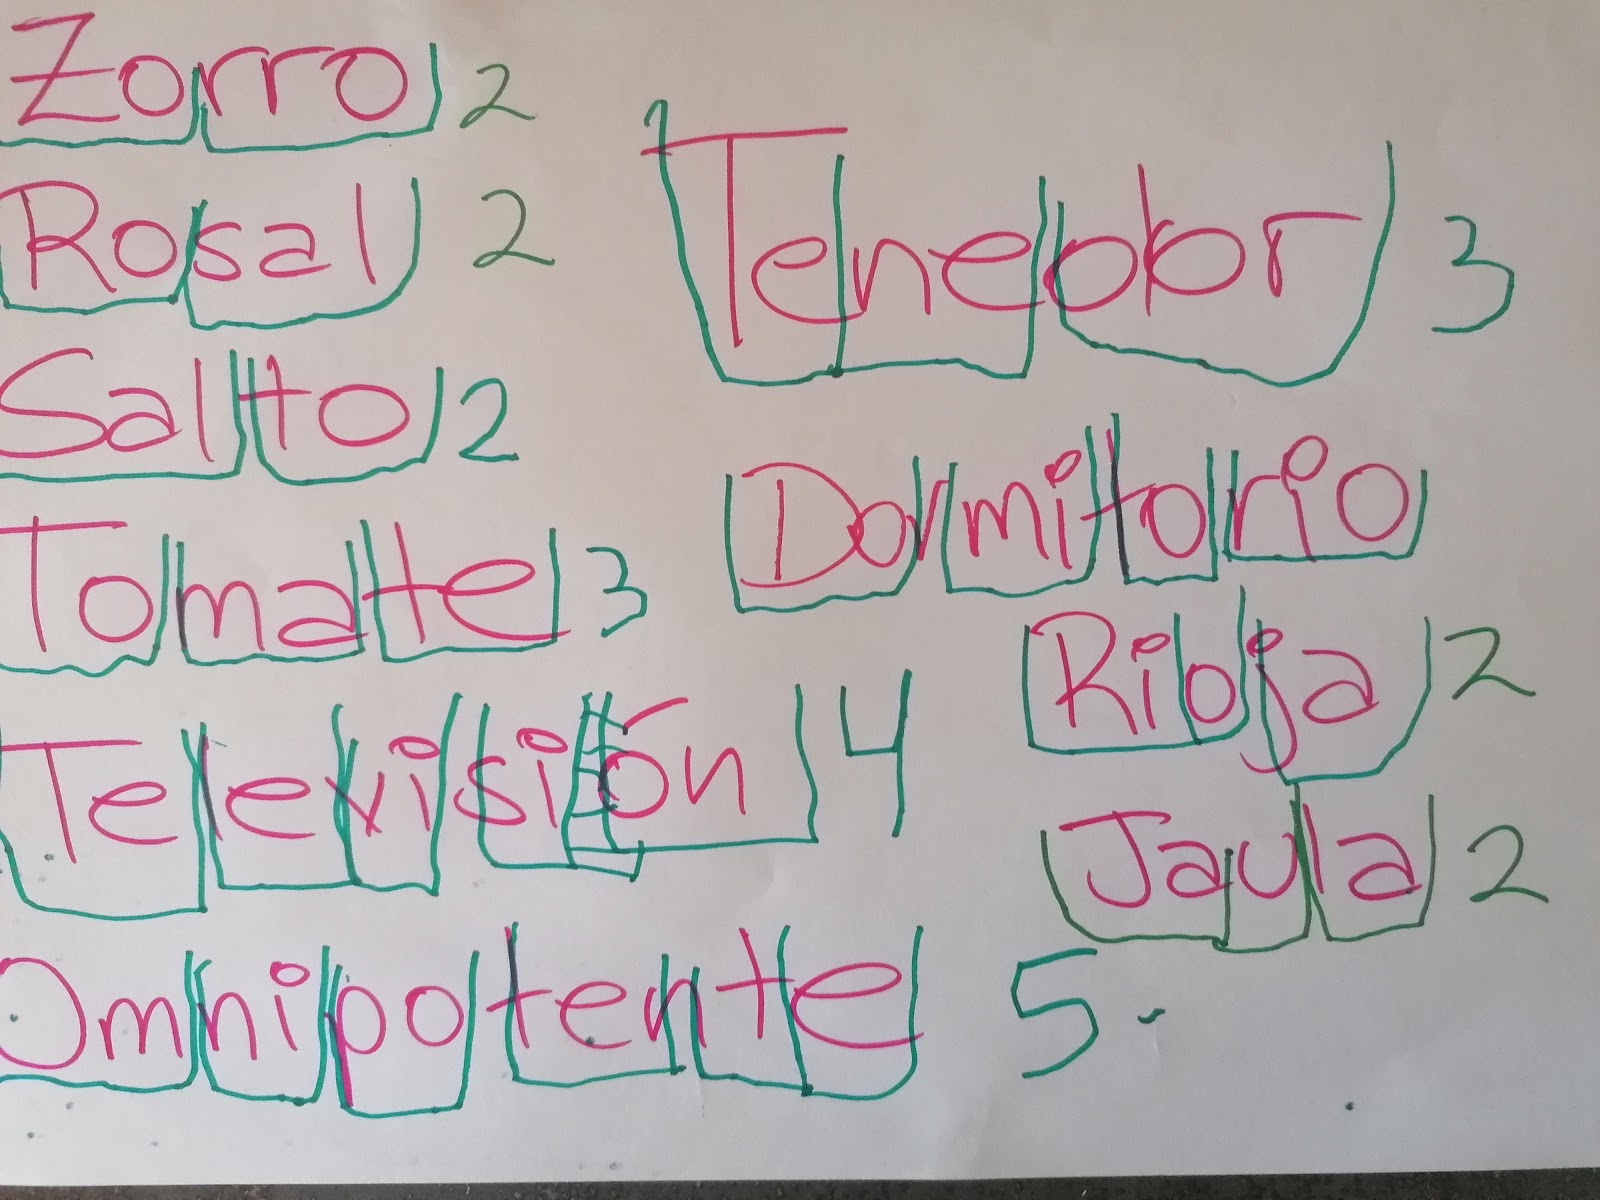 Zorro 2
Rosal 2
Salto 2
Tomate 3
Televisión 4
Omnipotente 5
Tenedor 3
Dormitorio
Rioja 2
Jaula 2